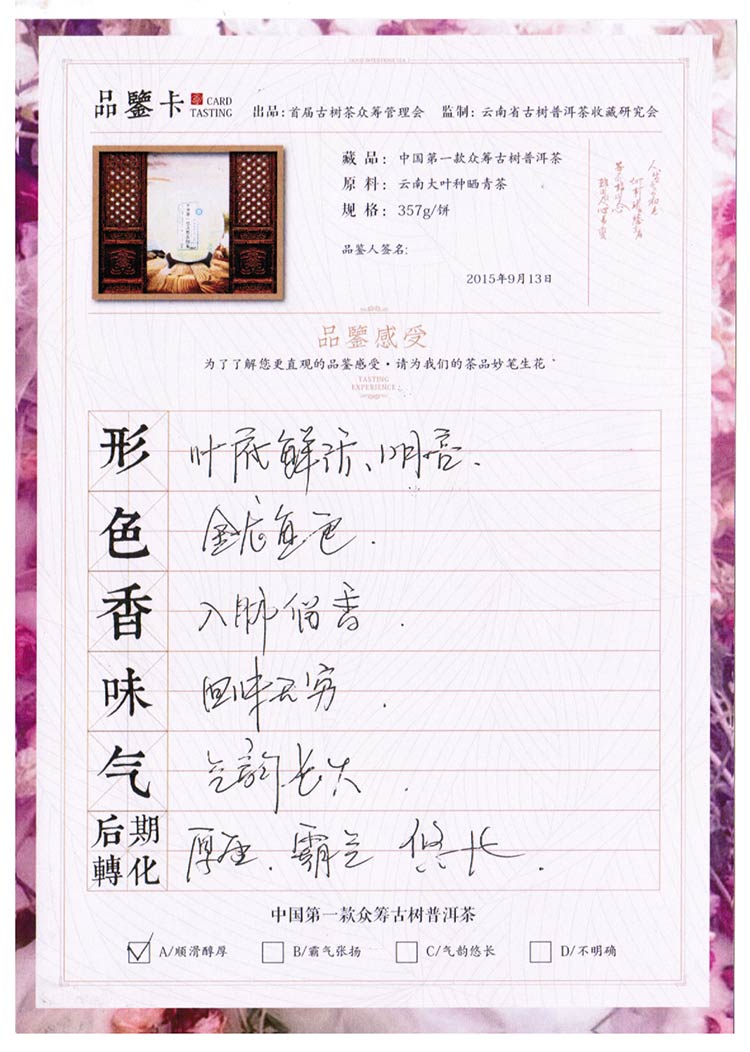 品鑒卡 CARD TASTING 出品：首届古树茶众筹管理会 监制：云南省古树普洱茶收藏研究会
藏 品：中国第一款众筹古树普洱茶
原 料：云南大叶种晒青茶
规 格：357g/饼
品鉴人签名：
2015年9月13日
品鑒感受
为了了解您更直观的品鉴感受·请为我们的茶品妙笔生花
TASTING
EXPERIENCE
形 叶底鲜活、明亮.
色 金底鱼色.
香 入肺留香.
味 回味无穷.
气 气韵长久.
后期轉化 厚重、霸气 悠长.
中国第一款众筹古树普洱茶
A/顺滑醇厚 B/霸气张扬 C/气韵悠长 D/不明确